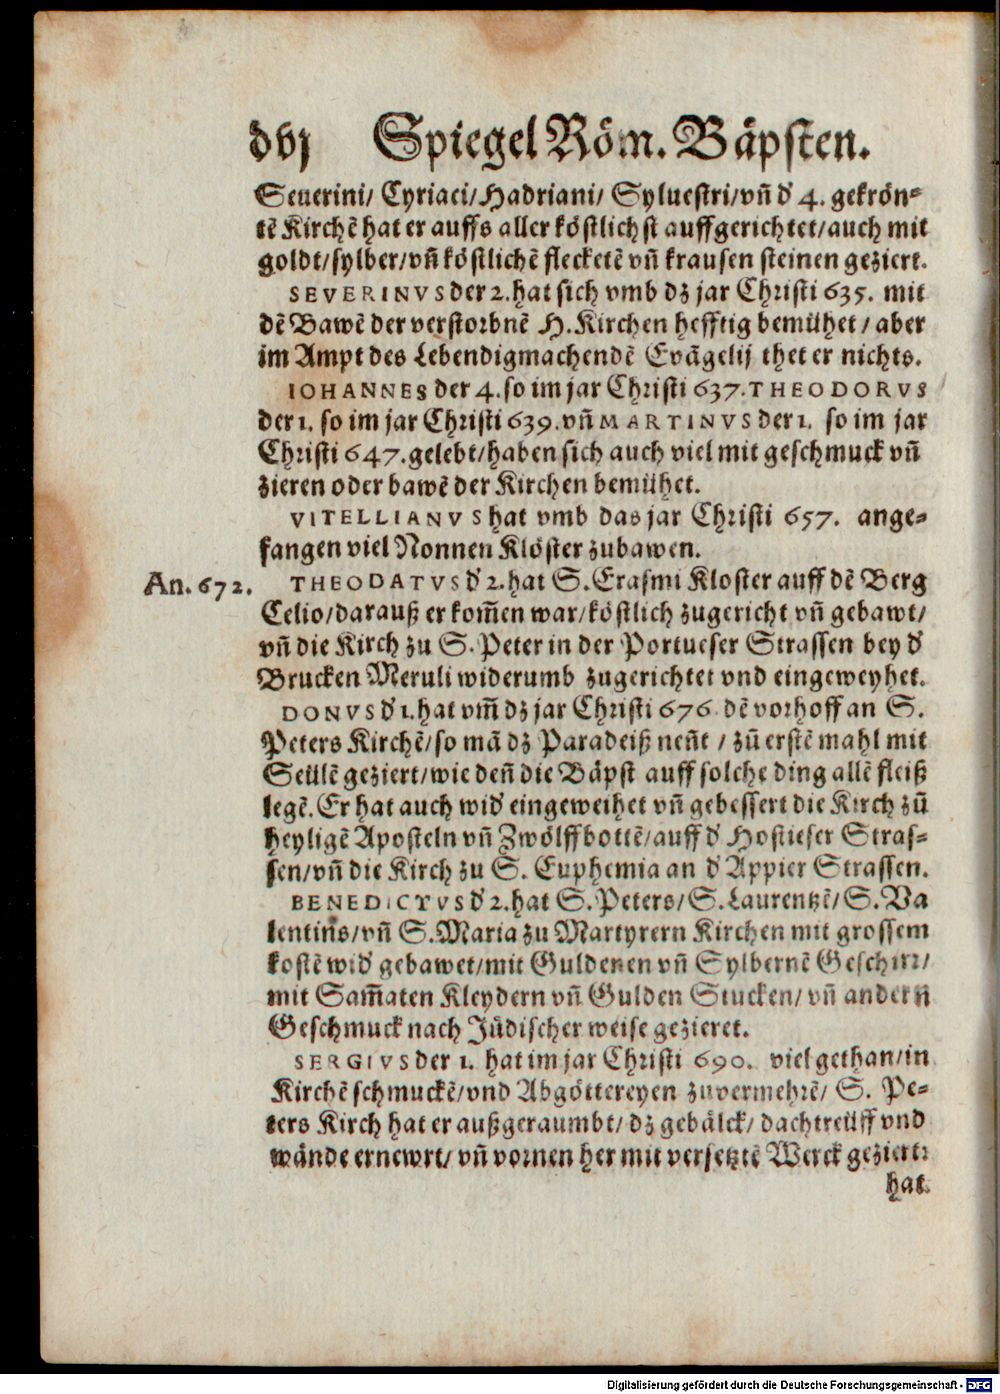 dvj Spiegel Röm. Bäpsten.
Seuerini/ Cyriaci/ Hadriani/ Syluestri/ vñ d' 4. gekrön⸗
tē Kirchē hat er auffs aller köstlichst auffgerichtet/ auch mit
goldt/ sylber/ vñ köstlichē fleckētē vñ krausen steinen geziert.
SEVERINVS der 2. hat sich vmb dz jar Christi 635. mit
dē Bawē der verstorbnē H. Kirchen hefftig bemühet/ aber
im Ampt des Lebendigmachendē Evāgelij thet er nichts.
IOHANNES der 4. so im jar Christi 637. THEODORVS
der 1. so im jar Christi 639. vñ MARTINVS der 1. so im jar
Christi 647. gelebt/ haben sich auch viel mit geschmuck vñ
zieren oder bawē der Kirchen bemühet.
VITELLIANVS hat vmb das jar Christi 657. ange⸗
fangen viel Nonnen Klöster zubawen.
An. 672. THEODATVS d' 2. hat S. Erasmi Kloster auff dē Berg
Celio/ darauß er kom̄en war/ köstlich zugericht vñ gebawt/
vñ die Kirch zu S. Peter in der Portueser Strassen bey d'
Brucken Meruli widerumb zugerichtet vnd eingeweyhet.
DONVS d' 1. hat vm̄ dz jar Christi 676 dē vorhoff an S.
Peters Kirchē/ so mā dz Paradeiß neñt / zū erstē mahl mit
Seülē geziert/ wie deñ die Bäpst auff solche ding allē fleiß
legē. Er hat auch wid' eingeweihet vñ gebessert die Kirch zū
heyligē Aposteln vñ Zwölffbottē/ auff d' Hostieser Stras⸗
sen/ vñ die Kirch zu S. Euphemia an d' Appier Strassen.
BENEDICTVS d' 2. hat S. Peters/ S. Laurentzē/ S. Va
lentins/ vñ S. Maria zu Martyrern Kirchen mit grossem
kostē wid' gebawet/ mit Guldenen vñ Sylbernē Geschirr/
mit Sam̄aten Kleydern vñ Gulden Stucken/ vñ andern̄
Geschmuck nach Jüdischer weise gezieret.
SERGIVS der 1. hat im jar Christi 690. viel gethan/ in
Kirchē schmuckē/ vnd Abgöttereyen zuvermehrē/ S. Pe⸗
ters Kirch hat er außgeraumbt/ dz gebälck/ dachtreüff vnd
wände ernewrt/ vñ vornen her mit versetztē Werck geziert:
hat
Digitalisierung gefördert durch die Deutsche Forschungsgemeinschaft - DFG